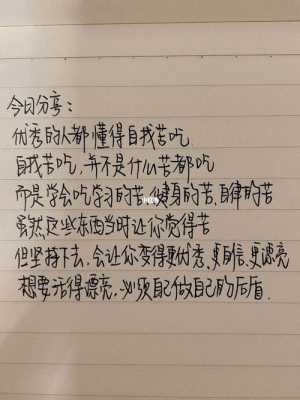 今日分享:
优秀的人都懂得自我苦吃
自我苦吃,并不是什么苦都吃
而是学会吃学习的苦、健身的苦、自律的苦
虽然这些东西当时让你觉得苦
但坚持下去,会让你变得更优秀、更自信、更漂亮
想要活得漂亮,必须自己做自己的后盾.